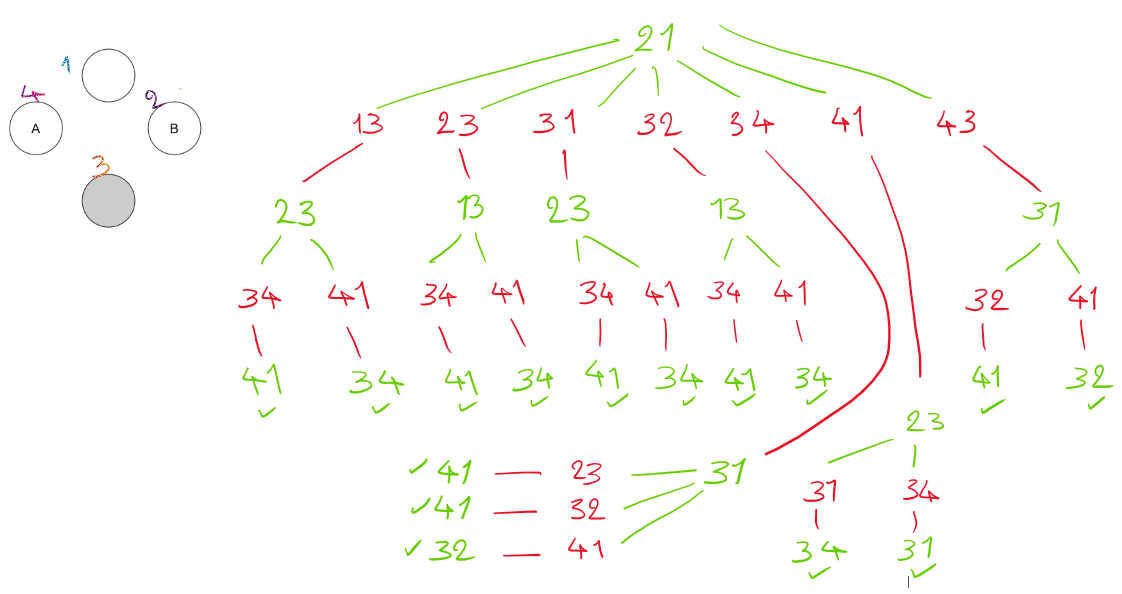 21
1
4
2
A
B
3
13 23 31 32 34 41 43
23 13 23 13 31
34 41 34 41 34 41 34 41 32 41
41 34 41 34 41 34 41 34 41 32
✓ ✓ ✓ ✓ ✓ ✓ ✓ ✓ ✓ ✓
23
✓ 41 23 31
31 34
✓ 41 32
✓ 32 41
34 31
✓ ✓